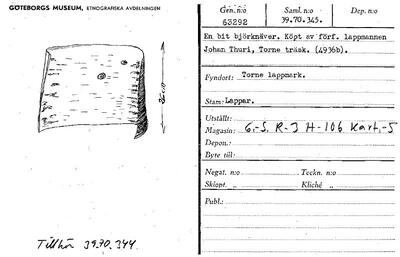 GÖTEBORGS MUSEUM, ETNOGRAFISKA AVDELNINGEN
Tillhö 39.70.344.
Gen. n:o 63292
Saml. n:o 39.70.345.
Dep. n:o
En bit björknäver. Köpt av förf. lappmannen
Johan Thuri, Torne träsk. (4936b).
Fyndort: Torne lappmark.
Stam: Lappar.
Utställt:
Magasin: 6.-S. R-J H-106 Kart.-5
Depon.:
Byte till:
Negat. n:o Teckn. n:o
Sklopt. „ Kliché „
Publ.: